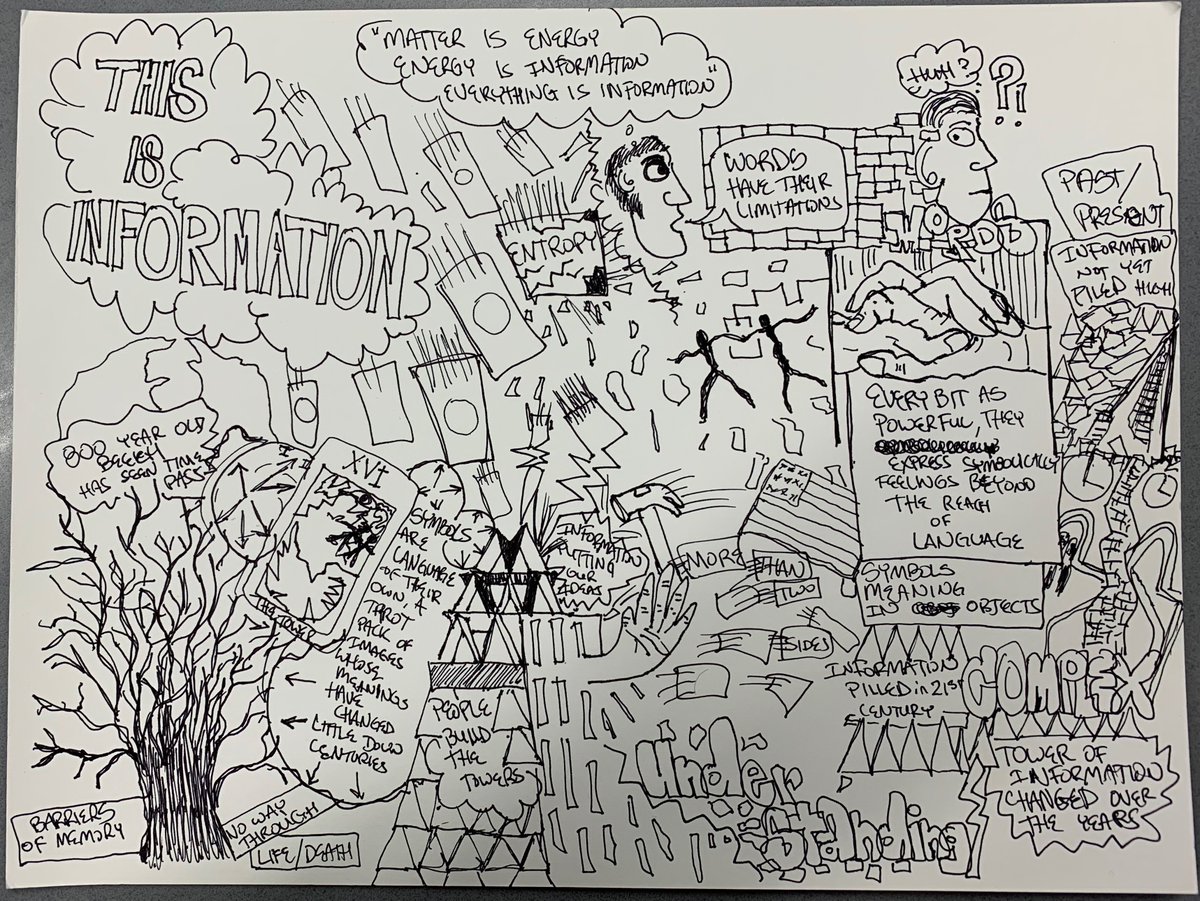 THIS
IS
INFORMATION
"MATTER IS ENERGY
ENERGY IS INFORMATION
EVERYTHING IS INFORMATION"
ENTROPY
WORDS
HAVE THEIR
LIMITATIONS
HUH?
?!
PAST/
PRESENT
INFORMATION
NOT YET
PILED HIGH
800 YEAR OLD
HAS SEEN TIME
PASS
THE TOWER
SYMBOLS
ARE
LANGUAGE
OF THEIR
OWN, A
TAROT
PACK OF
IMAGES
WHOSE
MEANINGS
HAVE
CHANGED
LITTLE DOWN
CENTURIES
INFORMATION
PUTTING
OUR
IDEAS
MORE
THAN
TWO
SIDES
EVERY BIT AS
POWERFUL, THEY
EXPRESS SYMBOLICALLY
FEELINGS BEYOND
THE REACH
OF
LANGUAGE
SYMBOLS
MEANING
IN OBJECTS
INFORMATION
PILLED in 21st
CENTURY
COMPLEX
TOWER OF
INFORMATION
CHANGED OVER
THE YEARS
PEOPLE
BUILD
THE
TOWERS
under
Standing
BARRIERS
OF MEMORY
NO WAY
THROUGH
LIFE/DEATH